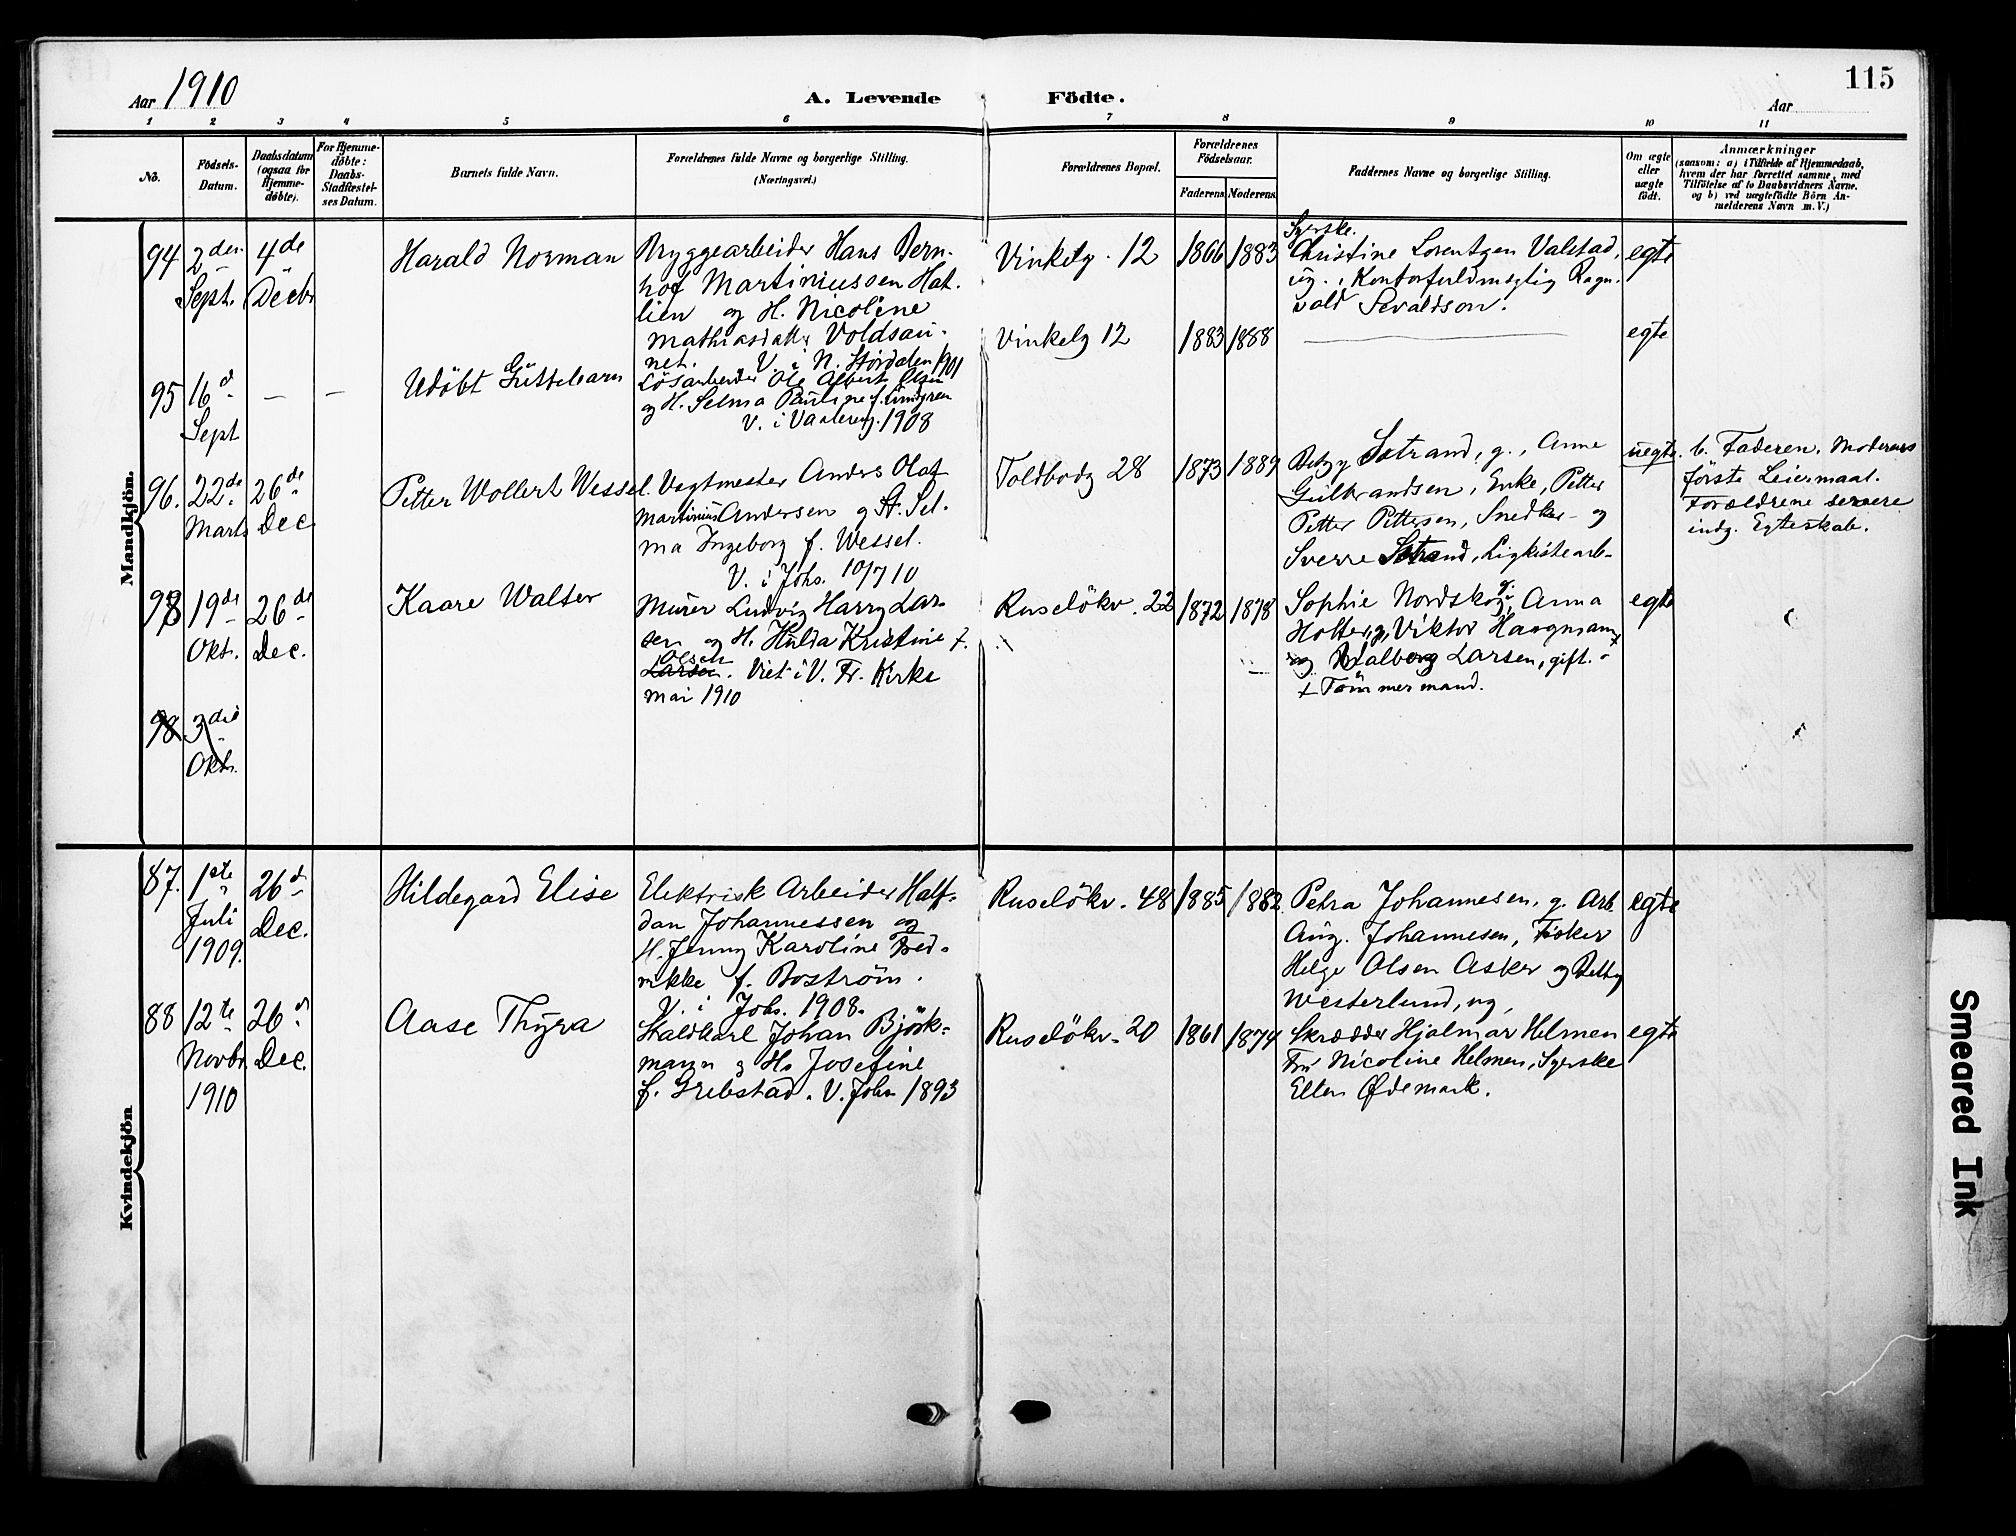 Aar 1910
A. Levende Födte.
115
Aar
1 2 3 4 5 6 7 8 9 10 11
No.
Födsels-
Datum.
Daabsdatum
(ogsaa for
Hjemme-
døbte).
For Hjemme-
døbte:
Daabs-
Stadfæstel-
ses Datum.
Barnets fulde Navn.
Forældrenes fulde Navne og borgerlige Stilling.
(Næringsvei.)
Forældrenes Bopæl.
Forældrenes
Födselsaar.
Faderens Moderens
Faddernes Navne og borgerlige Stilling.
Om ægte
eller
uægte
födt.
Anmærkninger
(saasom: a) i Tilfælde af Hjemmedaab,
hvem der har forrettet samme, med
Tilföielse af to Daabsvidners Navne,
og b) ved uægtefödte Börn An-
melderens Navn m.V.)
Mandkjön.
94
2den
Sept.
4de
Decbr
Harald Norman
Bryggearbeider Hans Bern-
hof Martiniussen Hal-
lien og H. Nicoline
Mathiasdatter Voldsau-
net. V. i N. Stördalen 1901
Vinkelg. 12
1866
1883
Syerske.
Christine Lorentzen Valstad,
ug., Kontorfuldmægtig Ragn-
vald Sevaldson.
egte
95
16d
Sept
—
—
Udöbt Guttebarn
Lösarbeider Ole Albert Olsen
og H. Selma Pauline f. Lindgren
V. i Vaalereng. 1908
Vinkelg 12
1883
1888
egte
96.
22de
Marts
26de
Dec
Petter Wollert Wessel.
Vagtmester Anders Olaf
Martinius Andersen og St. Sel-
ma Ingeborg f. Wessel.
V. i Johs. 10/7 10
Toldbodg 28
1873
1889
Betzy Satrand, g., Anne
Gulbrandsen, Enke, Petter
Petter Pettersen, Snedker og
Sverre Satrand, Ligkistearb-
uegte
b. Faderen. Moderens
förste Leiermaal.
Forældrene senere
indg. Egteskab.
98
19de
Okt.
26de
Dec.
Kaare Walter
Murer Ludvig Harry Lar-
sen og H. Hulda Kristine f.
Olsen
Larsen. Viet i V. Fr. Kirke
Mai 1910
Ruselökv. 22
1872
1878
Sophie Nordskog, g. Anna
Holter, g, Viktor Haugmann +
og Valborg Larsen, gift.
+ Tömmermand.
egte
98
3die
Okt.
Kvindekjön
87.
1ste
Juli
1909.
26d
Dec.
Hildegard Elise
Elektrisk Arbeider Half-
dan Johannessen og
H. Jenny Karoline Fred-
rikke f. Boström.
V. i Johs. 1908.
Ruselökv. 48
1885
1882
Petra Johannesen, g. Arb.
Aug. Johannesen, Fisker
Helge Olsen Asker og Betty
Westerlund, ug,
egte
88
12te
Novbr
1910
26d
Dec.
Aase Thyra
Staldkarl Johan Björk-
mann og H. Josefine
f. Grebstad. V. Johs 1893
Ruselökv. 20
1861
1874
Skrædder Hjalmar Helmen
Fru Nicoline Helmen, Syerske
Ellen Ødemark.
egte
Smeared Ink